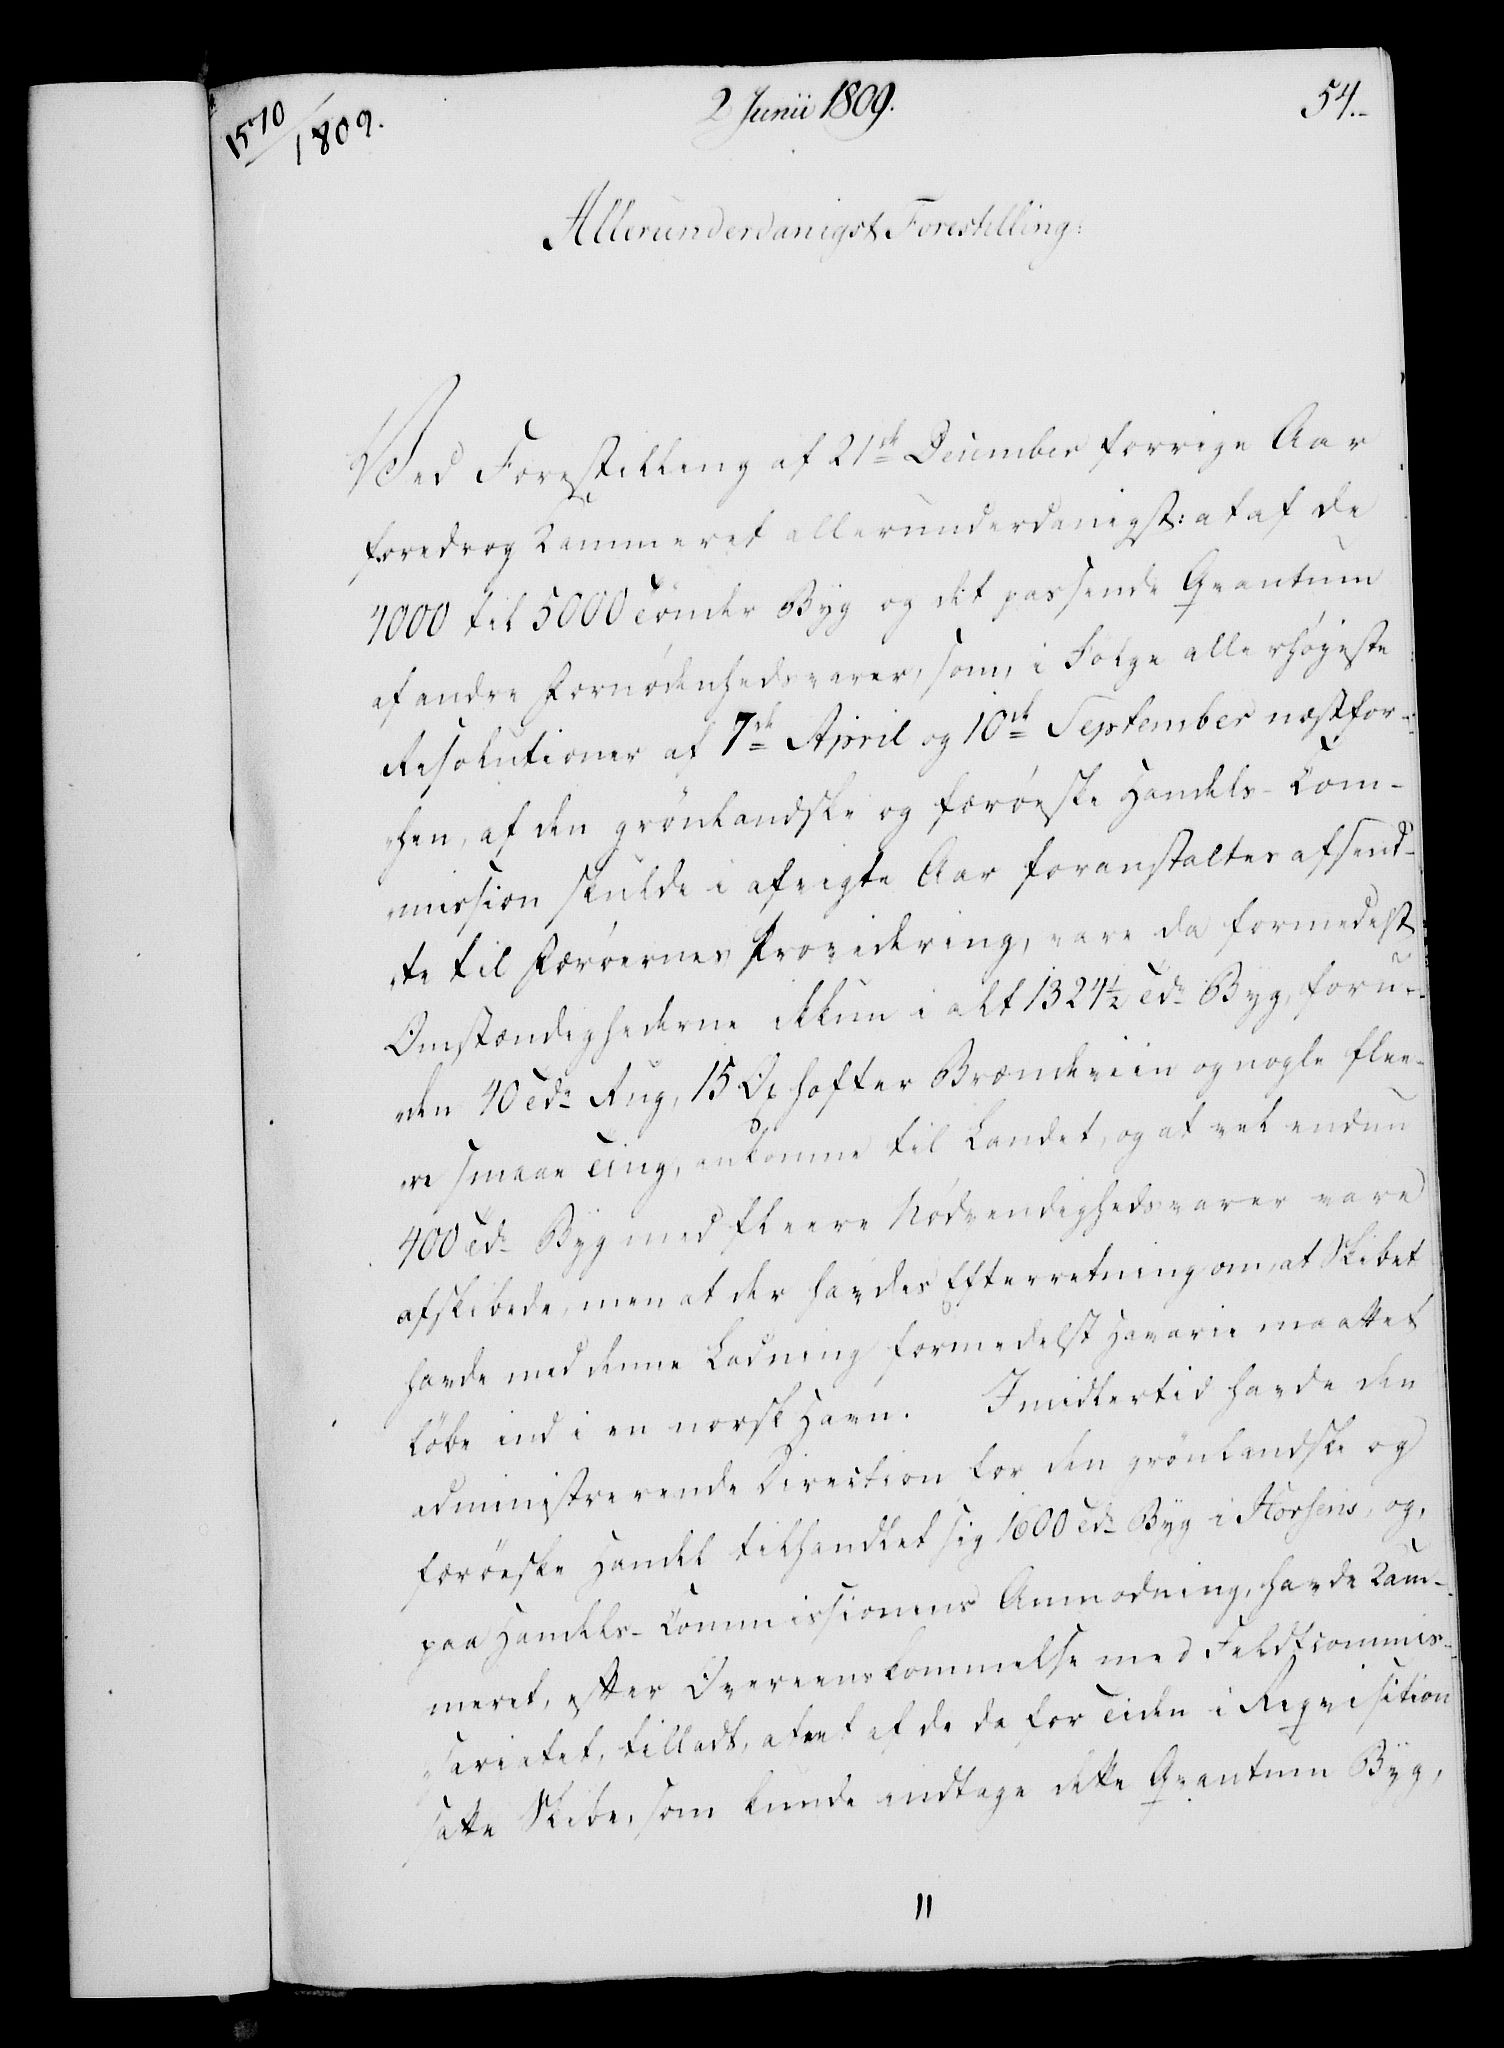 1570/1809.
2 Junii 1809.
54.
Allerunderdanigst Forestilling:
Ved Forestilling af 21de December forrige Aar
foredrog Kammeret allerunderdanigst: at af de
4000 til 5000 Tönder Byg og det passende Qvantum
af andre Fornødenhedsvarer, som, i Følge allerhöieste
Resolutioner af 7de April og 10de September næstfor-
hen, af den grönlandske og færöeske Handels-Com-
mission skulde i afvigte Aar foranstaltes afsend-
te til Færöernes Providering, vare da formedelst
Omstændighederne ikkun i alt 1324½ Tdr Byg, foru-
den 40 Tdr Rug, 15 Oxhofter Brændeviin og nogle flee-
re smaae Ting, ankomne til Landet, og at vel endnu
400 Tdr Byg med fleere Nödvendighedsvarer vare
afskibede, men at der havdes Efterretning om, at Skibet
havde med denne Ladning formedelst Havarie maattet
löbe ind i en norsk Havn. Imidlertid havde den
administrerende Direction for den grönlandske og
færöeske Handel tilhandlet sig 1600 Tdr Byg i Horsens, og,
paa Handels-Commissionens Anmodning, havde Kam-
meret, efter Overeenskommelse med Feldtcommis-
sariatet, tilladt, at eet af de da for Tiden i Reqvisition
satte Skibe, som kunde indtage dette Qvantum Byg,
11